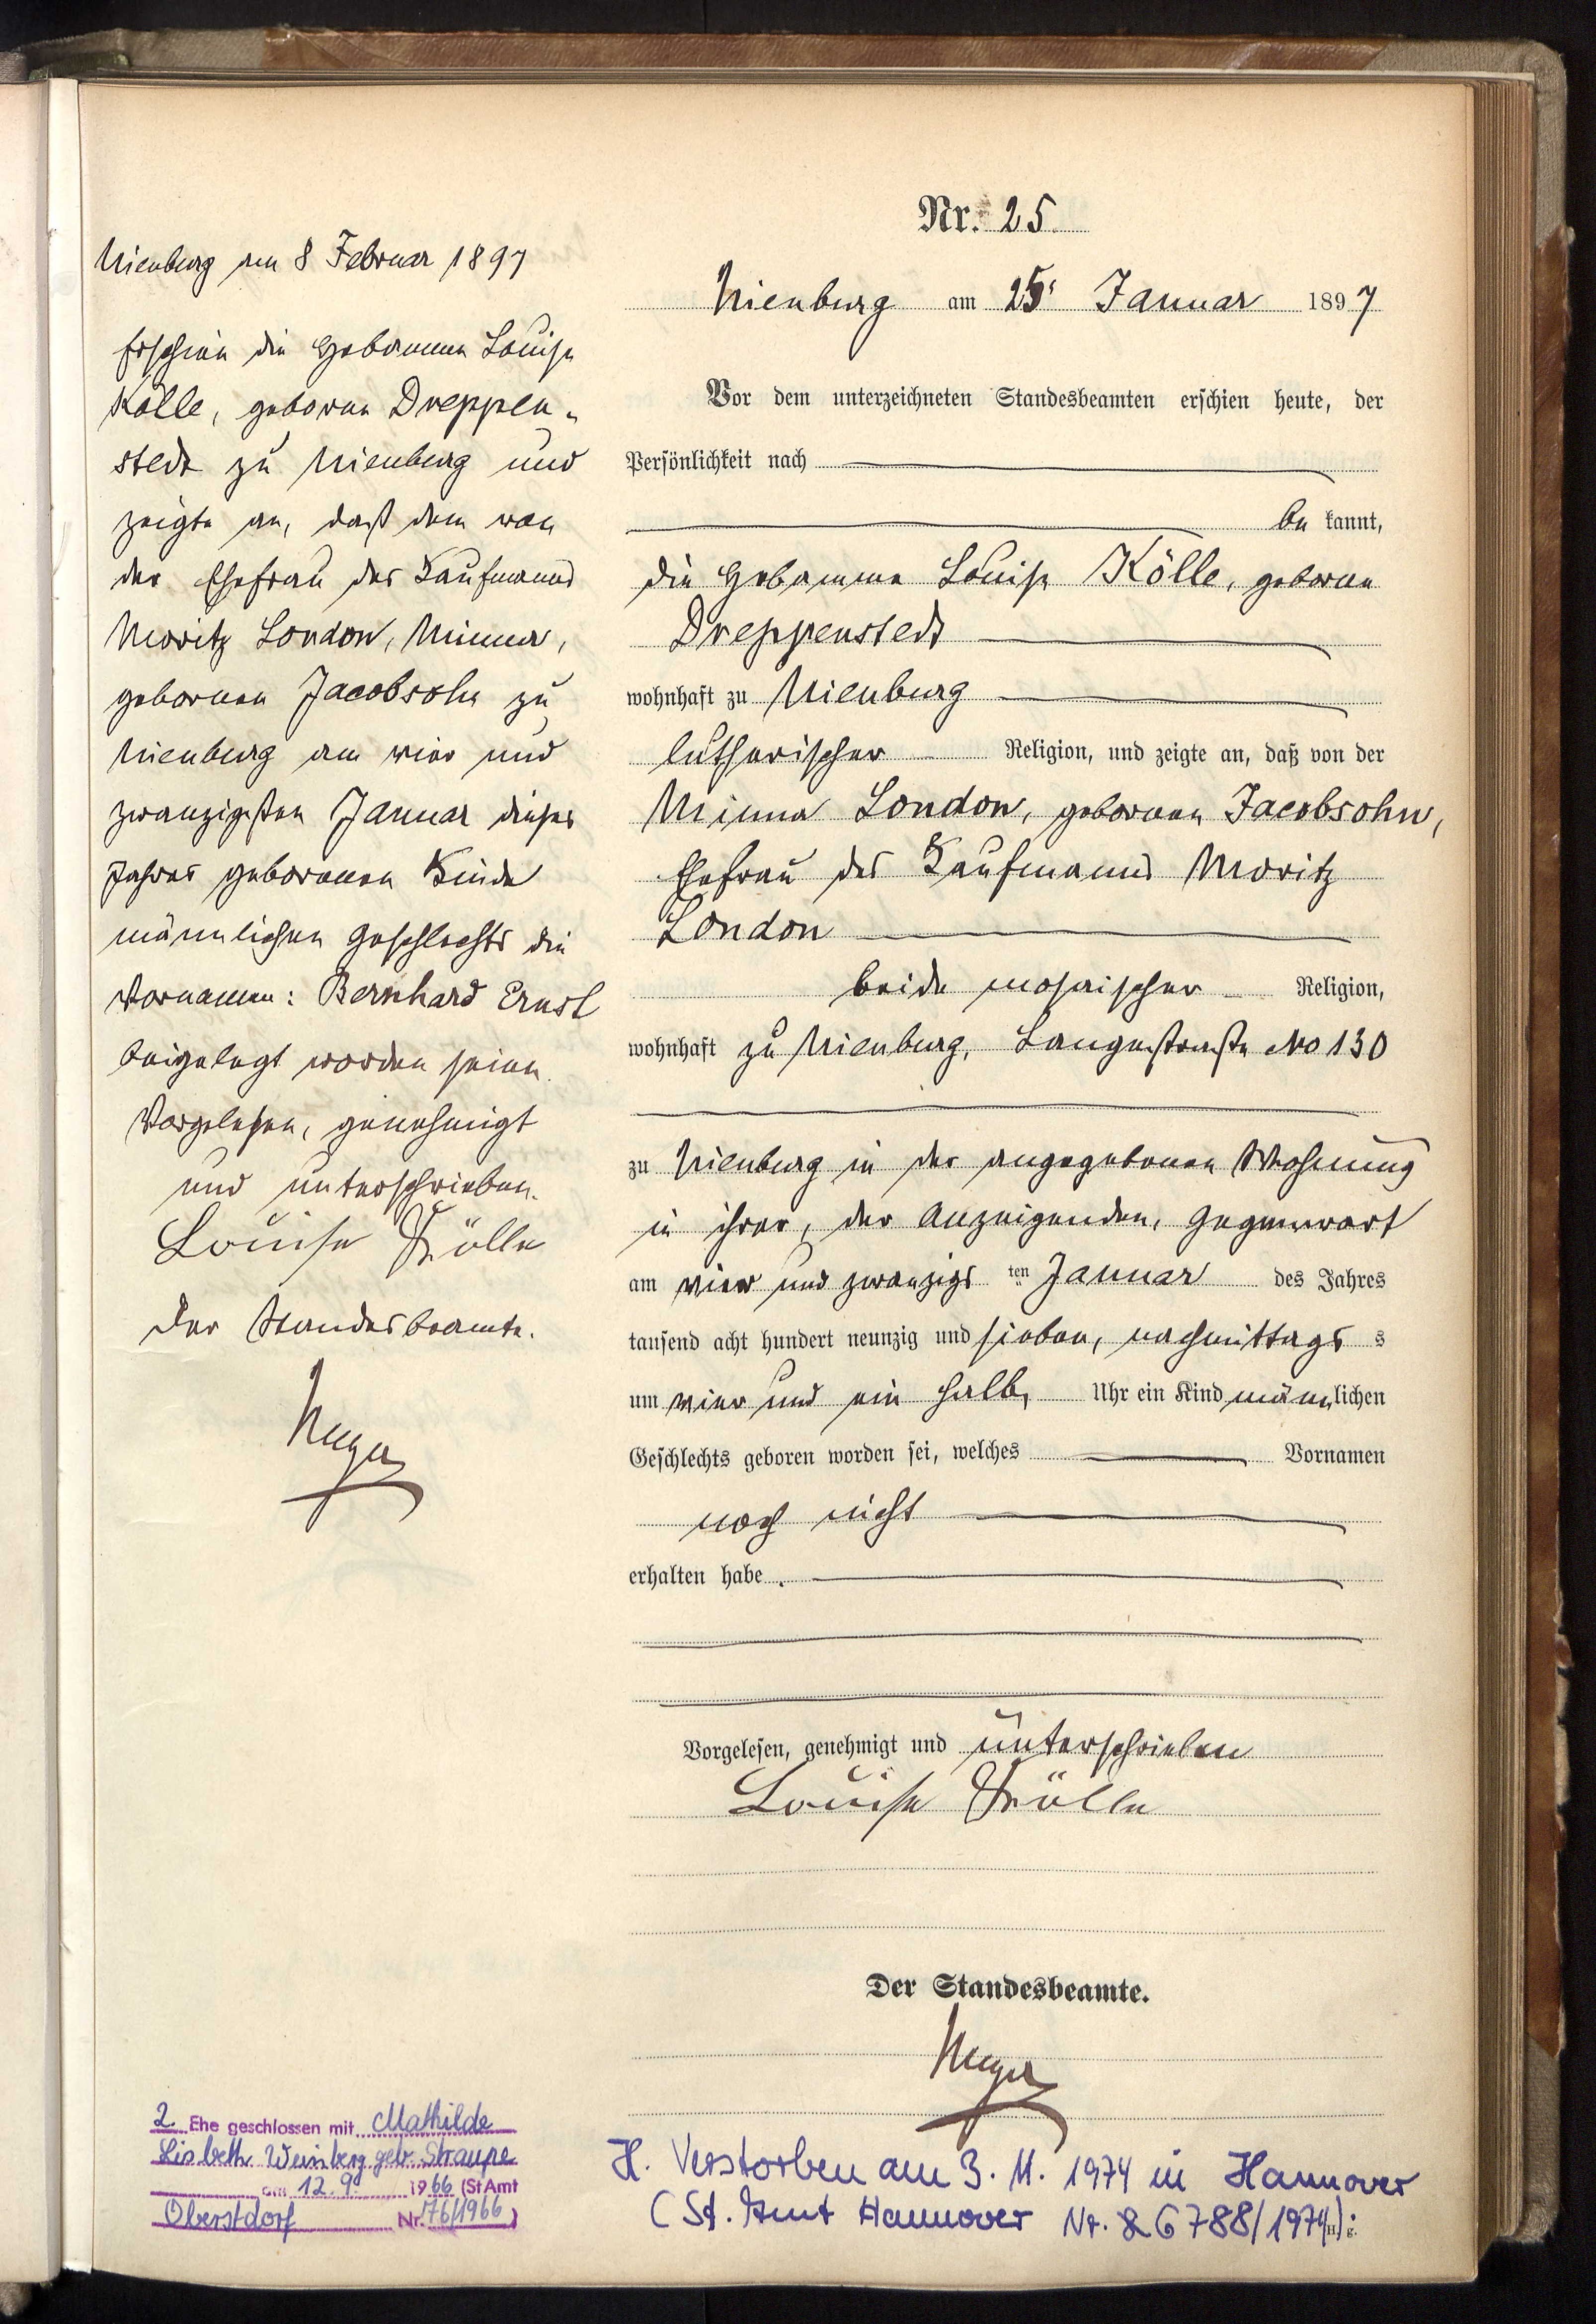 Nr. 25.
Nienburg am 25. Januar 1897
Vor dem unterzeichneten Standesbeamten erschien heute, der
Persönlichkeit nach
be kannt,
die Hebamme Louise Kölle, geborene
Dreppenstedt
wohnhaft zu Nienburg
lutherischer Religion, und zeigte an, daß von der
Minna London, geborenen Jacobsohn,
Ehefrau des Kaufmanns Moritz
London
beide mosaischer Religion,
wohnhaft zu Nienburg, Langestraße No 130
zu Nienburg in der angegebenen Wohnung
in ihrer, der Anzeigenden, Gegenwart
am vier und zwanzigs ten Januar des Jahres
tausend acht hundert neunzig und sieben, nachmittags s
um vier und ein halb Uhr ein Kind männlichen
Geschlechts geboren worden sei, welches Vornamen
noch nicht
erhalten habe.
Vorgelesen, genehmigt und unterschrieben
Louise Kölle
Der Standesbeamte.
Meyer
Nienburg am 8 Februar 1897
Erschien die Hebamme Louise
Kölle, geborene Dreppen-
stedt zu Nienburg und
zeigte an, daß dem von
der Ehefrau des Kaufmanns
Moritz London, Minna,
geborenen Jacobsohn zu
Nienburg am vier und
zwanzigsten Januar dieses
Jahres geborenen Kinde
männlichen Geschlechts die
Vornamen: Bernhard Ernst
beigelegt worden seien.
Vorgelesen, genehmigt
und unterschrieben.
Louise Kölle
Der Standesbeamte.
Meyer
2. Ehe geschlossen mit Mathilde
Lisbeth Weinberg geb. Straupe
am 12.9. 1966 (StAmt
Oberstdorf Nr. 176/1966)
H. Verstorben am 3. 11. 1974 in Hannover
(St. Amt Hannover Nr. 6788/1974)